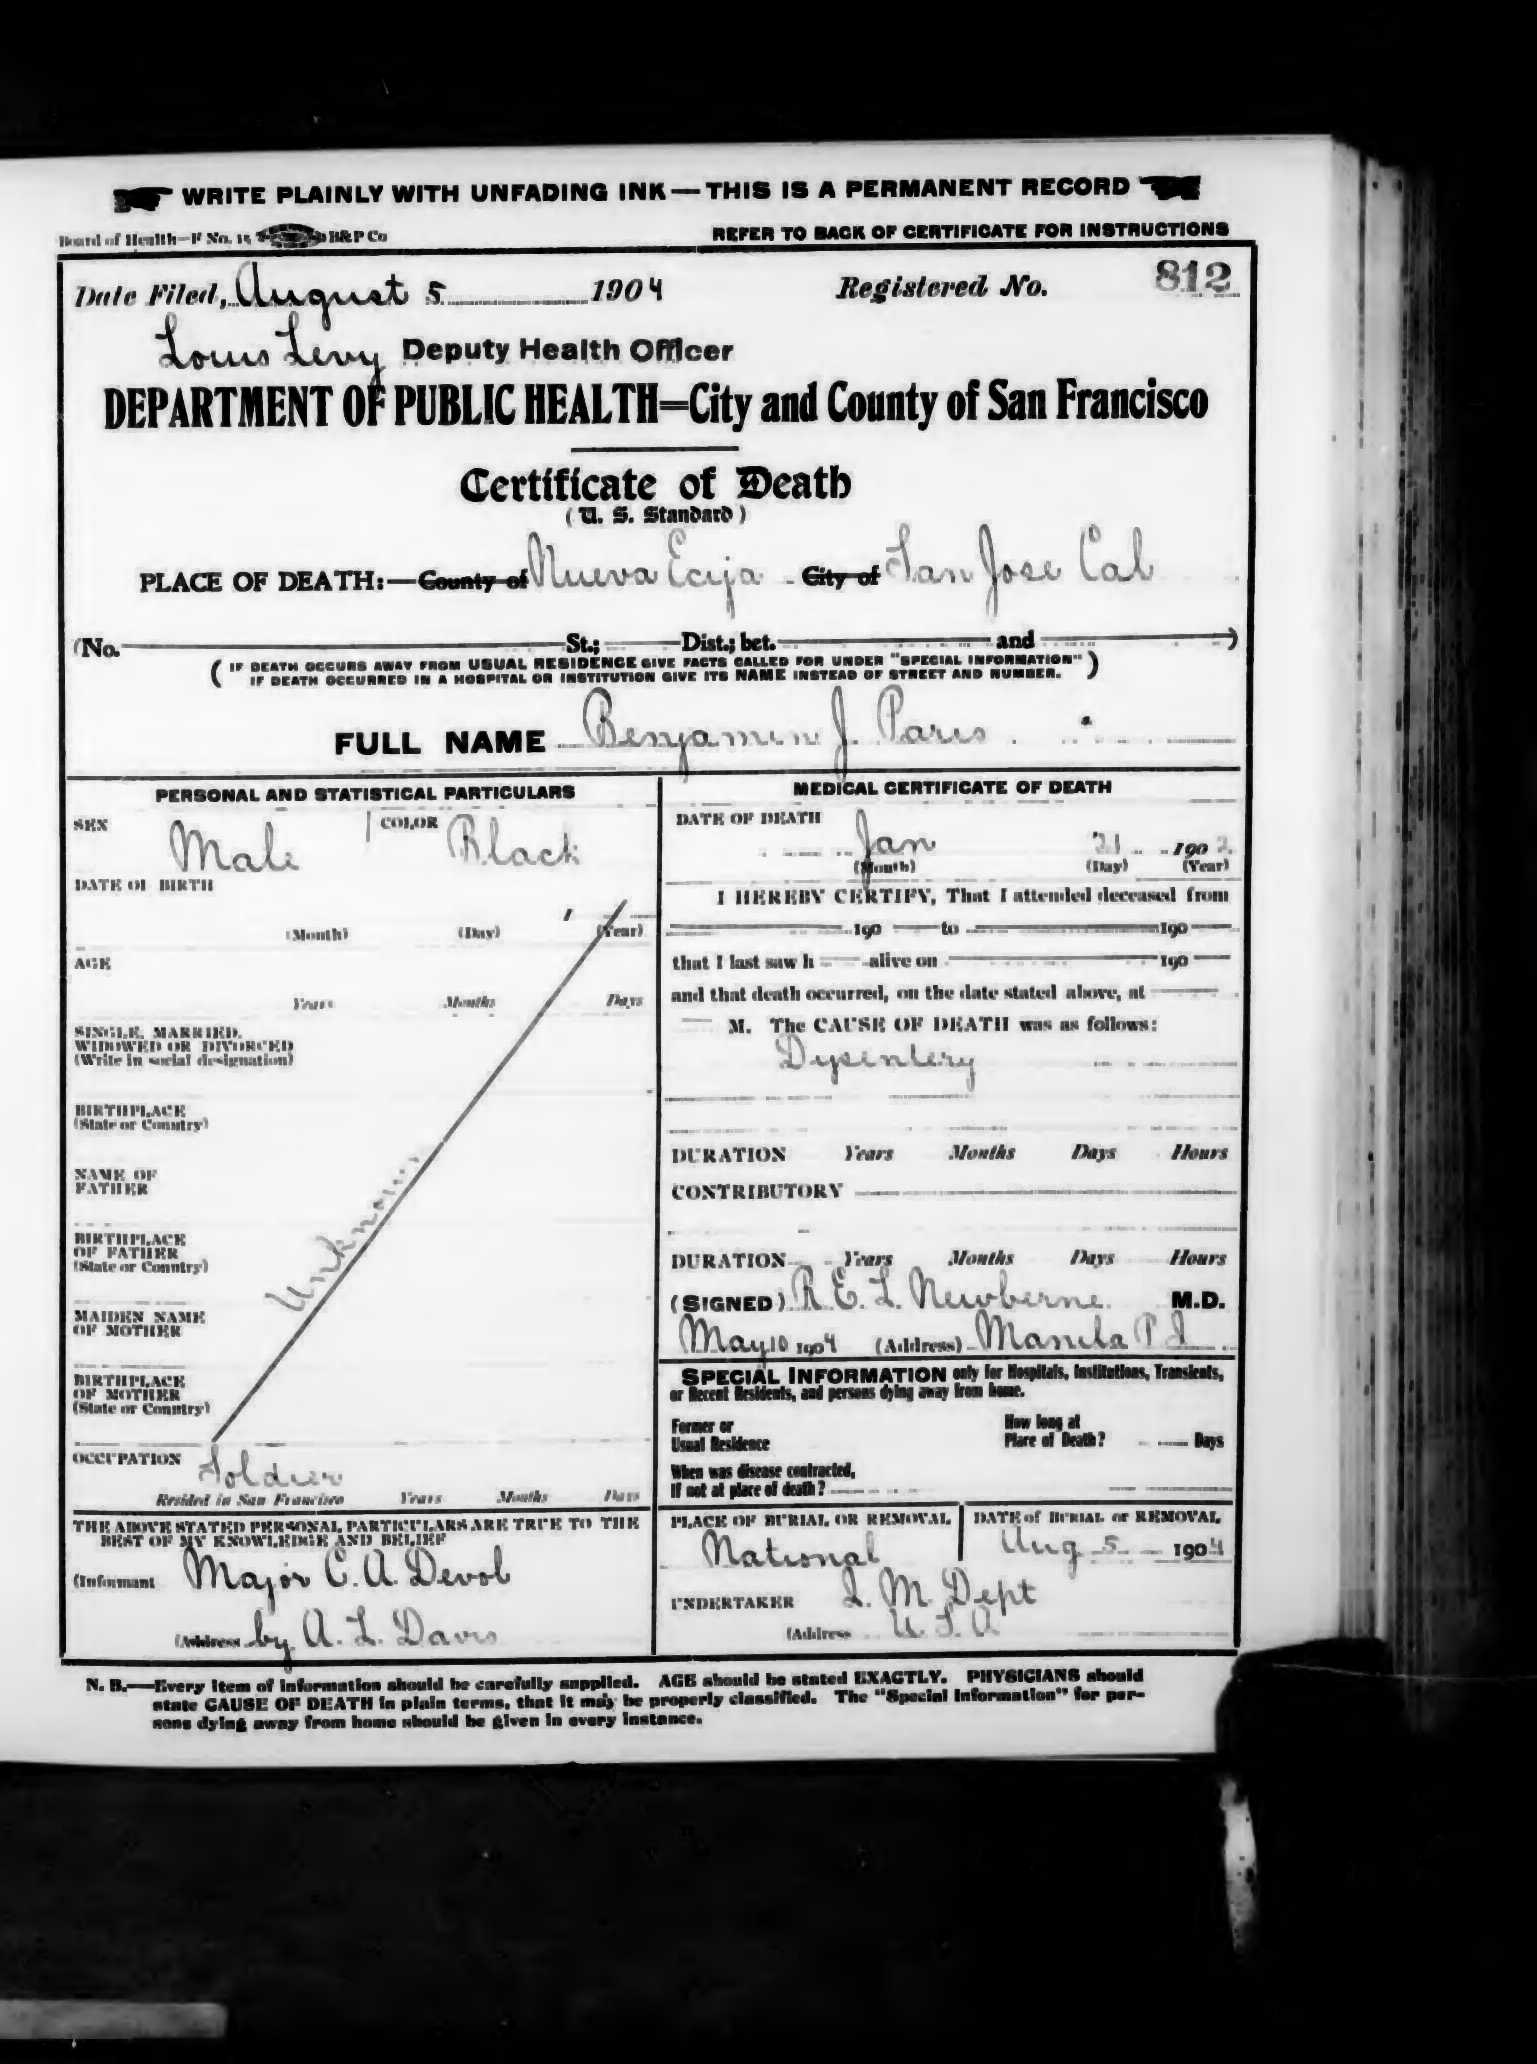 WRITE PLAINLY WITH UNFADING INK — THIS IS A PERMANENT RECORD
Board of Health—F No. 15 B&P Co
REFER TO BACK OF CERTIFICATE FOR INSTRUCTIONS
Date Filed, August 5 1904 Registered No. 812
Louis Levy Deputy Health Officer
DEPARTMENT OF PUBLIC HEALTH=City and County of San Francisco
Certificate of Death
(U. S. Standard)
PLACE OF DEATH:—County of Nueva Ecija City of San Jose Cab
(No. St.; Dist.; bet. and )
(IF DEATH OCCURS AWAY FROM USUAL RESIDENCE GIVE FACTS CALLED FOR UNDER "SPECIAL INFORMATION"
IF DEATH OCCURRED IN A HOSPITAL OR INSTITUTION GIVE ITS NAME INSTEAD OF STREET AND NUMBER.)
FULL NAME Benjamin J. Paris
PERSONAL AND STATISTICAL PARTICULARS
SEX Male COLOR Black
DATE OF BIRTH
(Month) (Day) (Year)
AGE
Years Months Days
SINGLE, MARRIED,
WIDOWED OR DIVORCED
(Write in social designation)
BIRTHPLACE
(State or Country)
NAME OF
FATHER
BIRTHPLACE
OF FATHER
(State or Country)
Unknown
MAIDEN NAME
OF MOTHER
BIRTHPLACE
OF MOTHER
(State or Country)
OCCUPATION Soldier
Resided in San Francisco Years Months Days
THE ABOVE STATED PERSONAL PARTICULARS ARE TRUE TO THE
BEST OF MY KNOWLEDGE AND BELIEF
(Informant Major C. A. Devol
(Address by A. L. Davis
MEDICAL CERTIFICATE OF DEATH
DATE OF DEATH
Jan 21 1902
(Month) (Day) (Year)
I HEREBY CERTIFY, That I attended deceased from
190 to 190
that I last saw h alive on 190
and that death occurred, on the date stated above, at
M. The CAUSE OF DEATH was as follows:
Dysentery
DURATION Years Months Days Hours
CONTRIBUTORY
DURATION Years Months Days Hours
(SIGNED) R. E. L. Newberne M.D.
May 10 1904 (Address) Manila P I
SPECIAL INFORMATION only for Hospitals, Institutions, Transients,
or Recent Residents, and persons dying away from home.
Former or
Usual Residence
How long at
Place of Death? Days
When was disease contracted,
If not at place of death?
PLACE OF BURIAL OR REMOVAL DATE of BURIAL or REMOVAL
National Aug 5 1904
UNDERTAKER Q. M. Dept
(Address U. S. A
N. B.—Every item of information should be carefully supplied. AGE should be stated EXACTLY. PHYSICIANS should
state CAUSE OF DEATH in plain terms, that it may be properly classified. The "Special Information" for per-
sons dying away from home should be given in every instance.